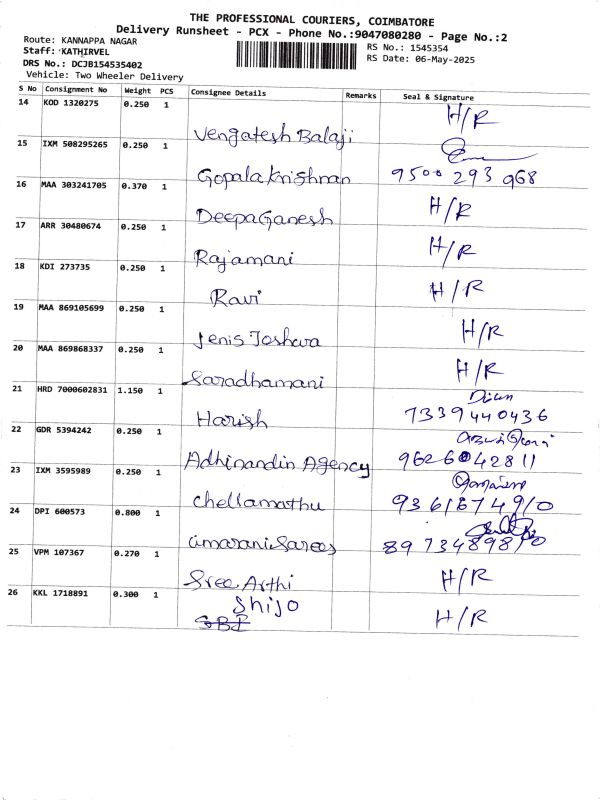 THE PROFESSIONAL COURIERS, COIMBATORE
Delivery Runsheet - PCX - Phone No.:9047080280 - Page No.:2
Route: KANNAPPA NAGAR
RS No.: 1545354
Staff: KATHIRVEL
RS Date: 06-May-2025
DRS No.: DCJB154535402
Vehicle: Two Wheeler Delivery
S No Consignment No Weight PCS Consignee Details Remarks Seal & Signature
14 KOD 1320275 0.250 1 Vengatesh Balaji H/R
15 IXM 508295265 0.250 1 Gopala Krishnan 9500 293 968
16 MAA 303241705 0.370 1 Deepa Ganesh H/R
17 ARR 30480674 0.250 1 Rajamani H/R
18 KDI 273735 0.250 1 Ravi H/R
19 MAA 869105699 0.250 1 Jenis Joshwa H/R
20 MAA 869868337 0.250 1 Saradhamani H/R
21 HRD 7000602831 1.150 1 Harish 7339440436
22 GDR 5394242 0.250 1 Adhinandin Agency 9626042811
23 IXM 3595989 0.250 1 Chellamathu 9361674910
24 DPI 600573 0.800 1 amarani Sarees 8973489810
25 VPM 107367 0.270 1 Sree Arthi H/R
26 KKL 1718891 0.300 1 Shijo H/R
SBI